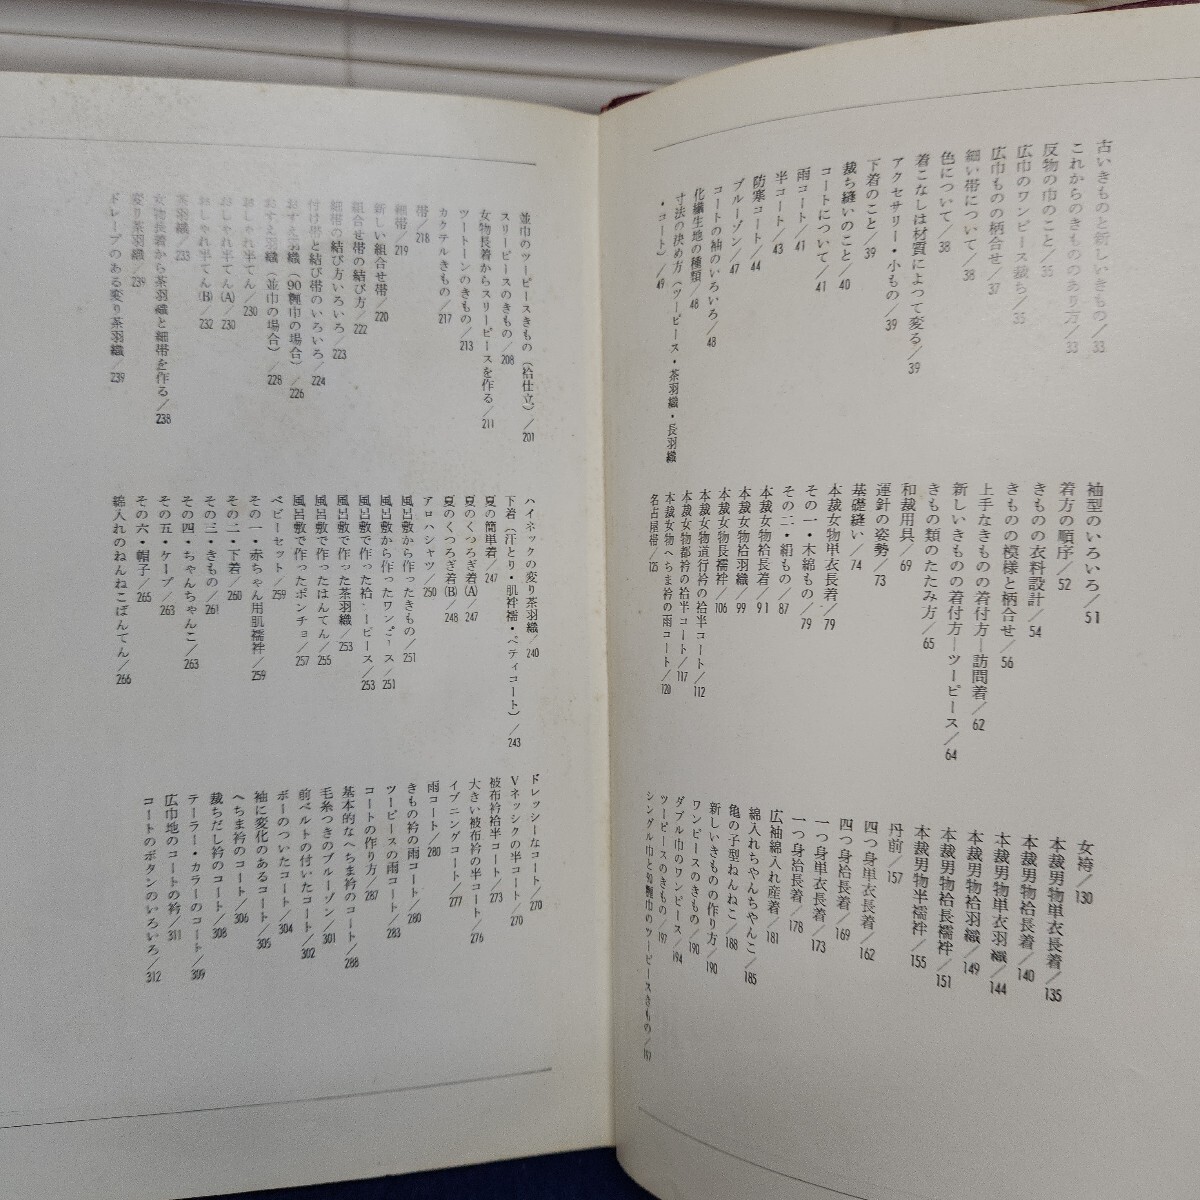 古いきものと新しいきもの／33
これからのきもののあり方／33
反物の巾のこと／35
広巾のワンピース裁ち／35
広巾ものの柄合せ／37
細い帯について／38
色について／38
着こなしは材質によって変る／39
アクセサリー・小もの／39
下着のこと／39
裁ち縫いのこと／40
コートについて／41
雨コート／41
半コート／43
防寒コート／44
ブルーゾン／47
コートの袖のいろいろ／48
化繊生地の種類／48
寸法の決め方（ツーピース・茶羽織・長羽織
・コート）／49
袖型のいろいろ／51
着方の順序／52
きものの衣料設計／54
きものの模様と柄合せ／56
上手なきものの着付方―訪問着／62
新しいきものの着付方―ツーピース／64
きもの類のたたみ方／65
和裁用具／69
運針の姿勢／73
基礎縫い／74
本裁女物単衣長着／79
その一・木綿もの／79
その二・絹もの／87
本裁女物袷長着／91
本裁女物袷羽織／99
本裁女物長襦袢／106
本裁女物道行衿の袷半コート／112
本裁女物都衿の袷半コート／117
本裁女物へちま衿の雨コート／120
名古屋帯／125
女袴／130
本裁男物単衣長着／135
本裁男物袷長着／140
本裁男物単衣羽織／144
本裁男物袷羽織／149
本裁男物袷長襦袢／151
本裁男物半襦袢／155
丹前／157
四つ身単衣長着／162
四つ身袷長着／169
一つ身単衣長着／173
一つ身袷長着／178
広袖綿入れ産着／181
綿入れちゃんちゃんこ／185
亀の子型ねんねこ／188
新しいきものの作り方／190
ワンピースのきもの／190
ダブル巾のワンピース／194
ツーピースのきもの／197
シングル巾と90糎巾のツーピースきもの／197
並巾のツーピースきもの（袷仕立）／201
スリーピースのきもの／208
女物長着からスリーピースを作る／211
ツートーンのきもの／213
カクテルきもの／217
帯／218
細帯／219
新しい組合せ帯／220
組合せ帯の結び方／222
細帯の結び方いろいろ／223
付け帯と結び帯のいろいろ／224
おすえ羽織（90糎巾の場合）／226
おすえ羽織（並巾の場合）／228
おしゃれ半てん／230
おしゃれ半てん(A)／230
おしゃれ半てん(B)／232
茶羽織／233
女物長着から茶羽織と細帯を作る／238
変り茶羽織／239
ドレープのある変り茶羽織／239
ハイネックの変り茶羽織／240
下着（汗とり・肌襦袢・ペティコート）／243
夏の簡単着／247
夏のくつろぎ着(A)／247
夏のくつろぎ着(B)／248
アロハシャツ／250
風呂敷から作ったきもの／251
風呂敷から作ったワンピース／251
風呂敷で作った袷ツーピース／253
風呂敷で作った茶羽織／253
風呂敷で作ったはんてん／255
風呂敷で作ったポンチョ／257
ベビーセット／259
その一・赤ちゃん用肌襦袢／259
その二・下着／260
その三・きもの／261
その四・ちゃんちゃんこ／263
その五・ケープ／263
その六・帽子／265
綿入れのねんねこばんてん／266
ドレッシーなコート／270
Vネックの半コート／270
被布衿袷半コート／273
大きい被布衿の半コート／276
イブニングコート／277
雨コート／280
きもの衿の雨コート／280
ツーピースの雨コート／283
コートの作り方／287
基本的なへちま衿のコート／288
毛糸つきのブルーゾン／301
前ベルトの付いたコート／302
ボーのついたコート／304
袖に変化のあるコート／305
へちま衿のコート／306
裁ちだし衿のコート／308
テーラー・カラーのコート／309
広巾地のコートの衿／311
コートのボタンのいろいろ／312